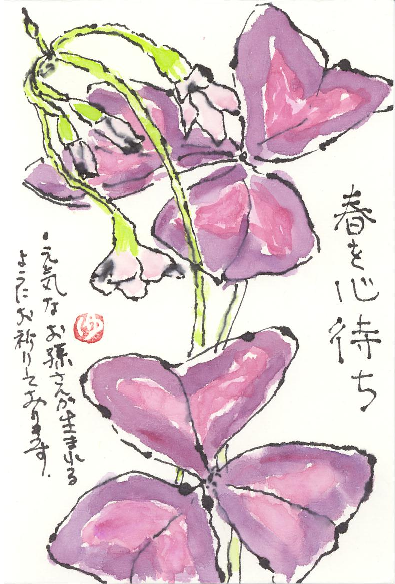 春を心待ち
・元気なお孫さんが生まれる
ようにお祈りしております.